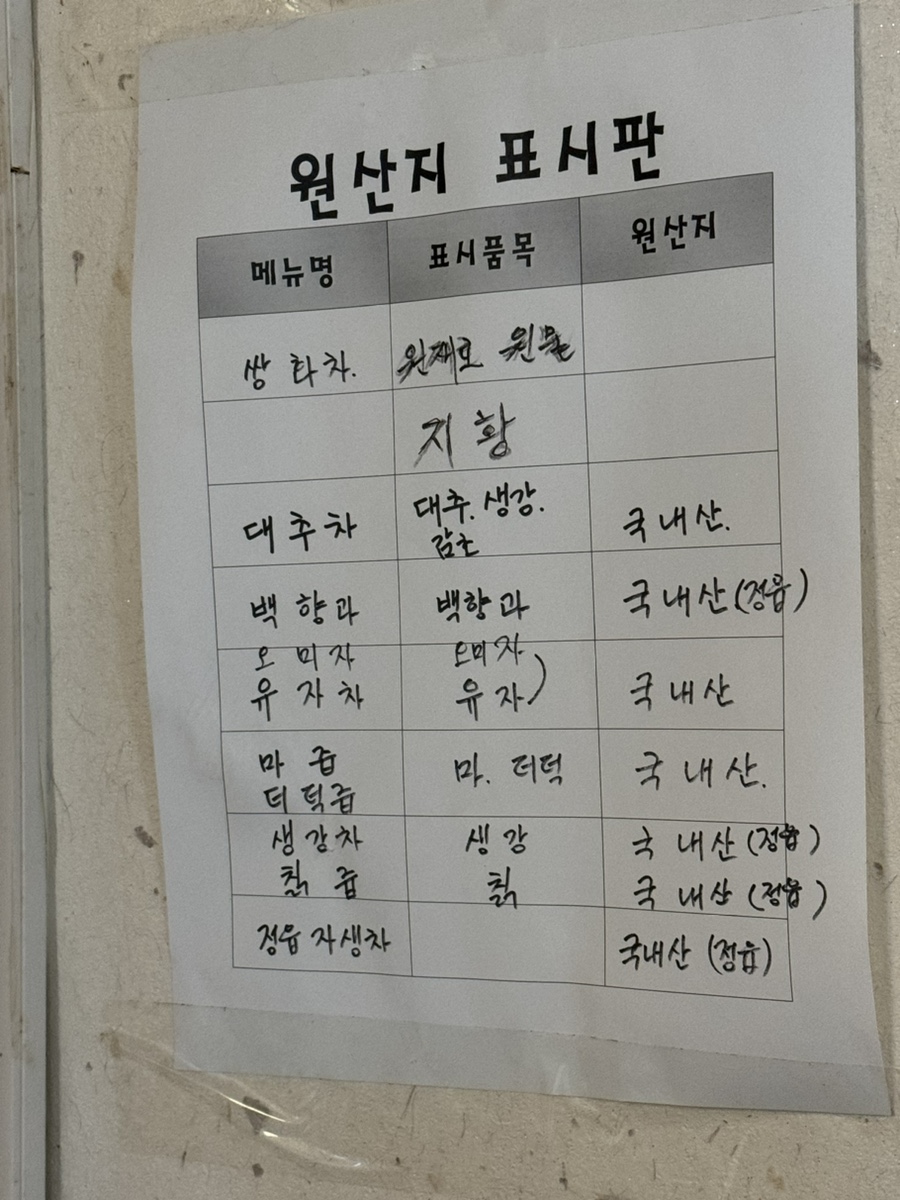 원산지 표시판
메뉴명 표시품목 원산지
쌍화차. 원재료
지황
대추차 대추. 생강. 감초 국내산.
백향과 백향과 국내산(정읍)
오미자 오미자
유자차 유자) 국내산
마즙 마. 더덕 국내산.
더덕즙
생강차 생강 국내산(정읍)
칡즙 칡 국내산(정읍)
정읍자생차 국내산(정읍)